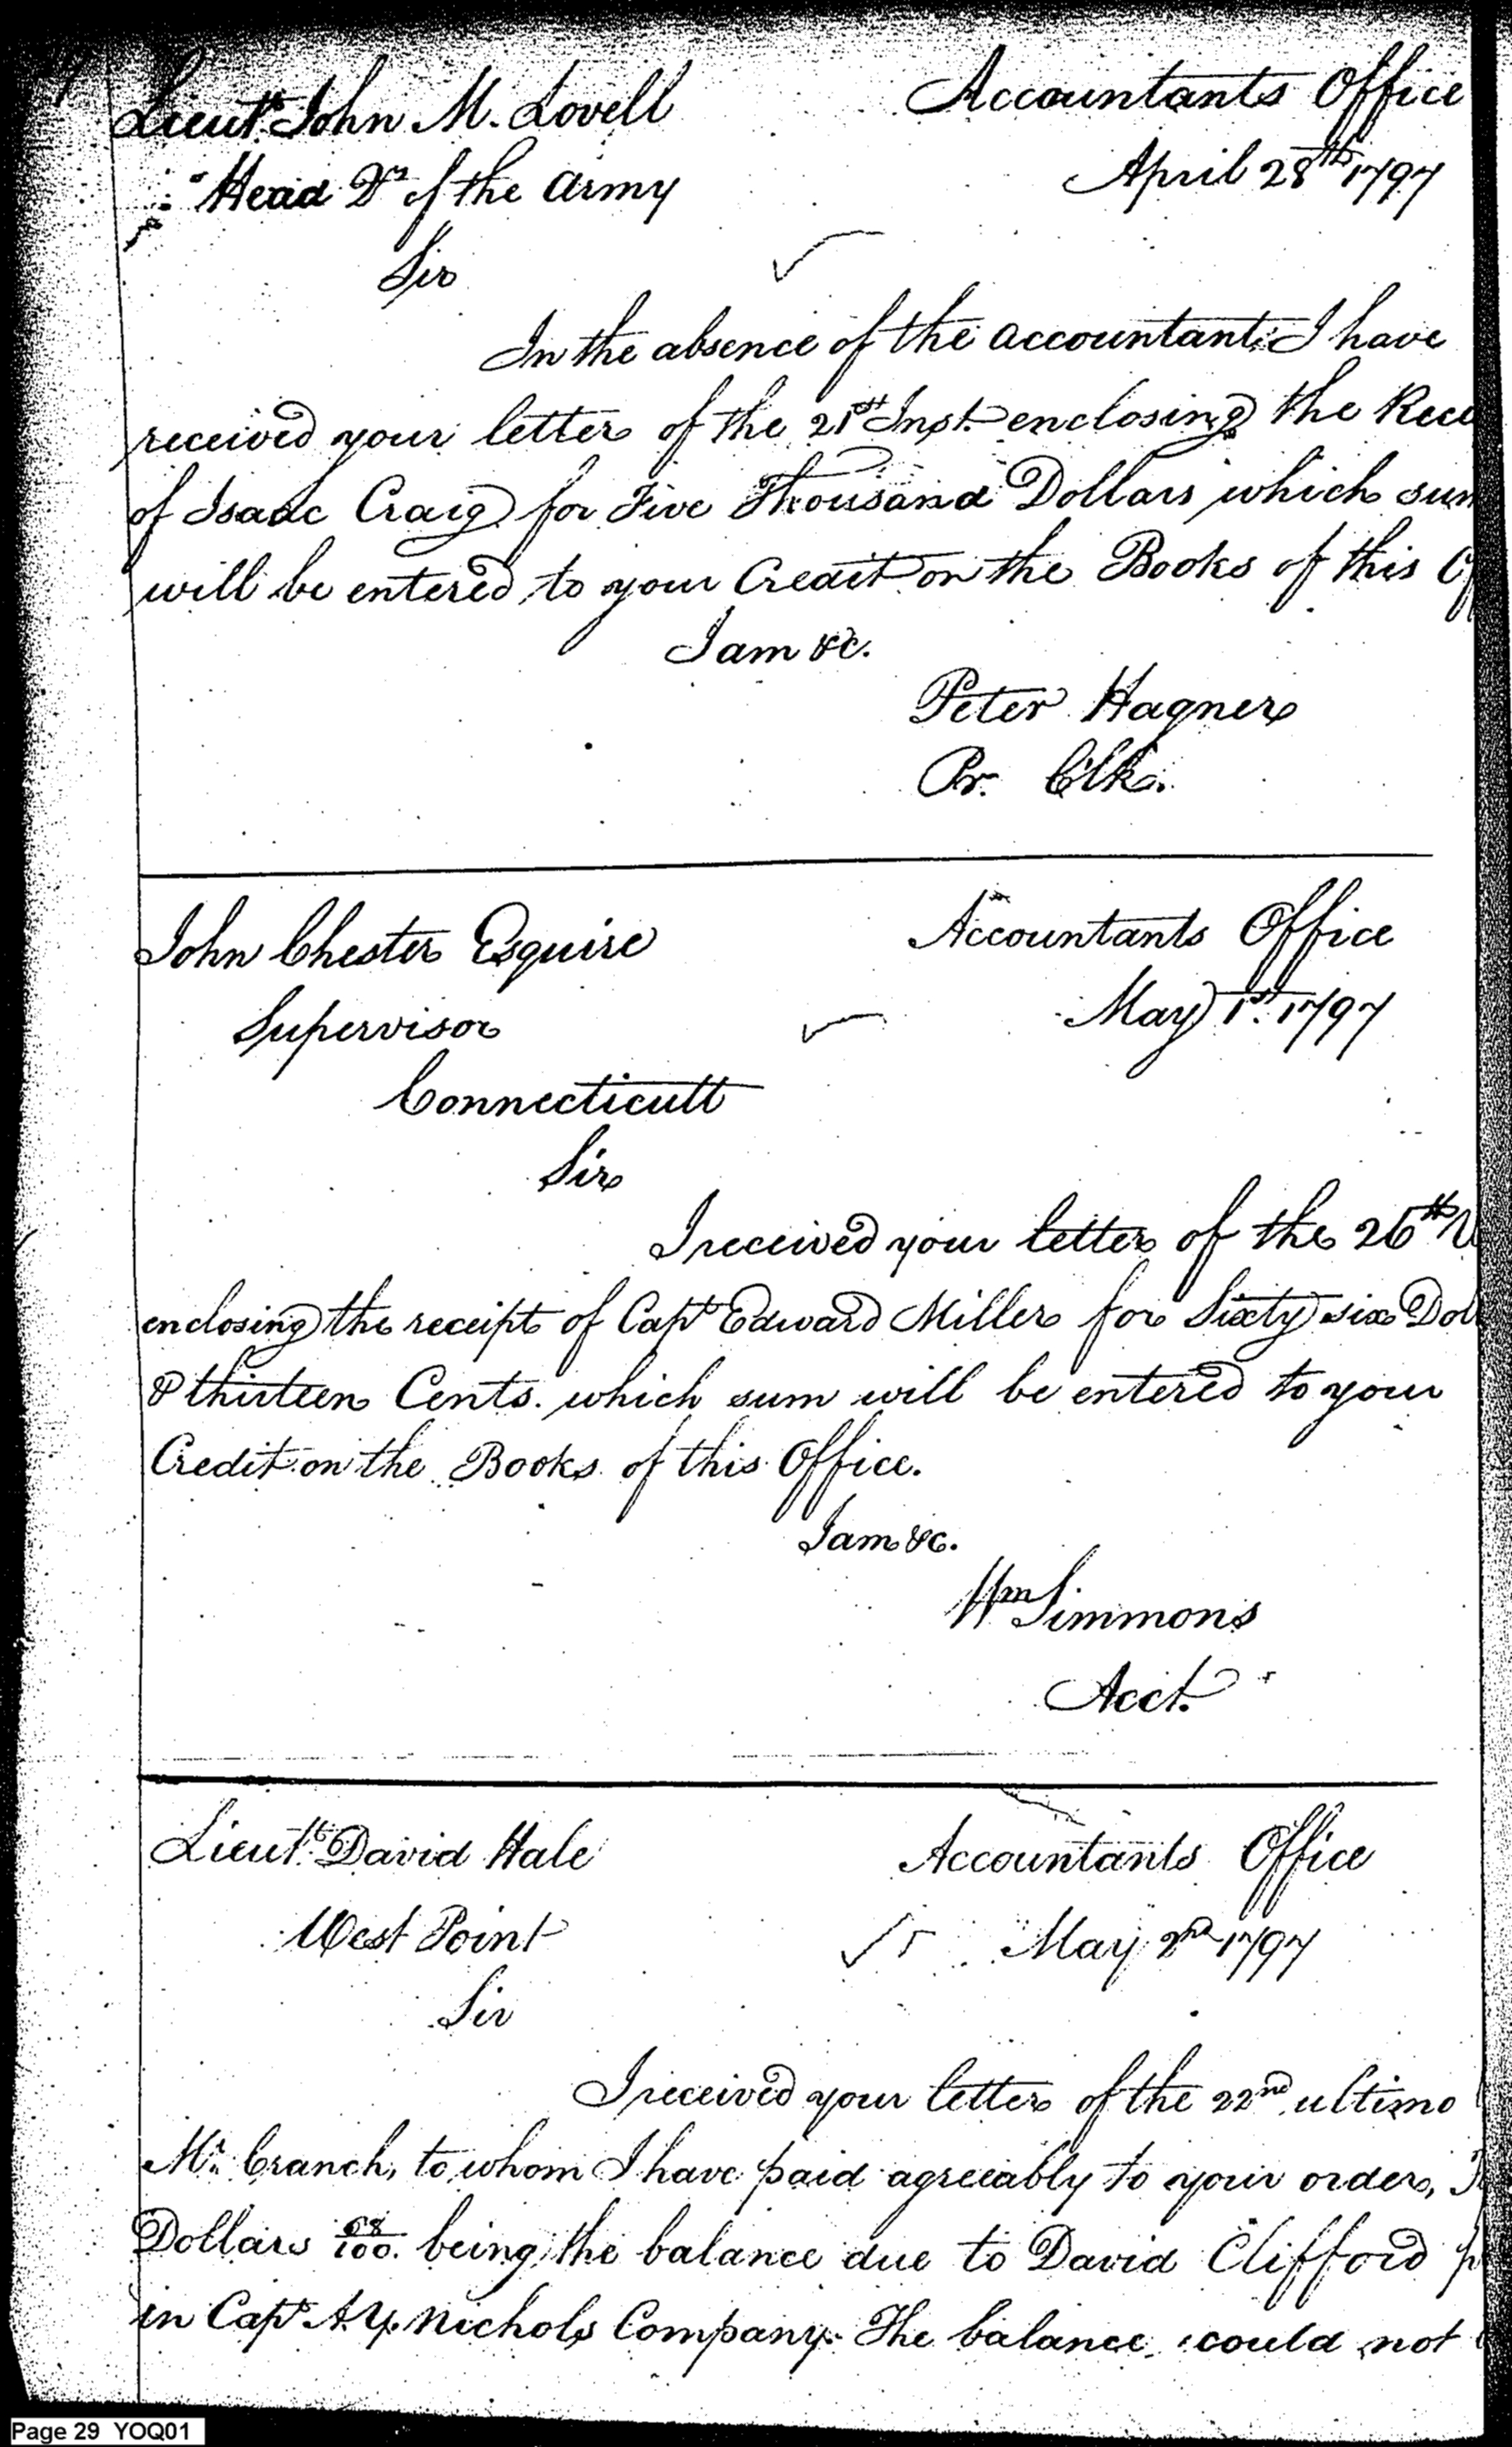 Lieut. John M. Lovell
Accountants Office
Head Qrs of the Army
April 28th 1797
Sir
In the absence of the accountant I have
received your letter of the 21st Inst. enclosing the Rece
of Isaac Craig for Five Thousand Dollars which sum
will be entered to your Credit on the Books of this Of
I am &c.
Peter Hagner
Pr. Clk.
John Chester Esquire
Accountants Office
Supervisor
May 1st. 1797
Connecticutt
Sir
I received your letter of the 26th U
enclosing the receipt of Capt Edward Miller for Sixty six Dol
& thirteen Cents. which sum will be entered to your
Credit on the Books of this Office.
I am &c.
Wm Simmons
Acct.
Lieut. David Hale
Accountants Office
West Point
May 2nd 1797
Sir
I received your letter of the 22nd ultimo
Mr. Cranch, to whom I have paid agreeably to your order,
Dollars 68/100. being the balance due to David Clifford p
in Capt A. Y. Nichols Company. The balance could not
Page 29 YOQ01